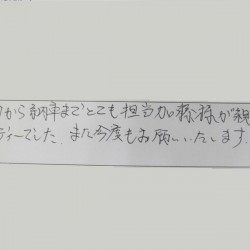 から納車までとても担当加藤様が親
ディーでした。また今度もお願いいたします。